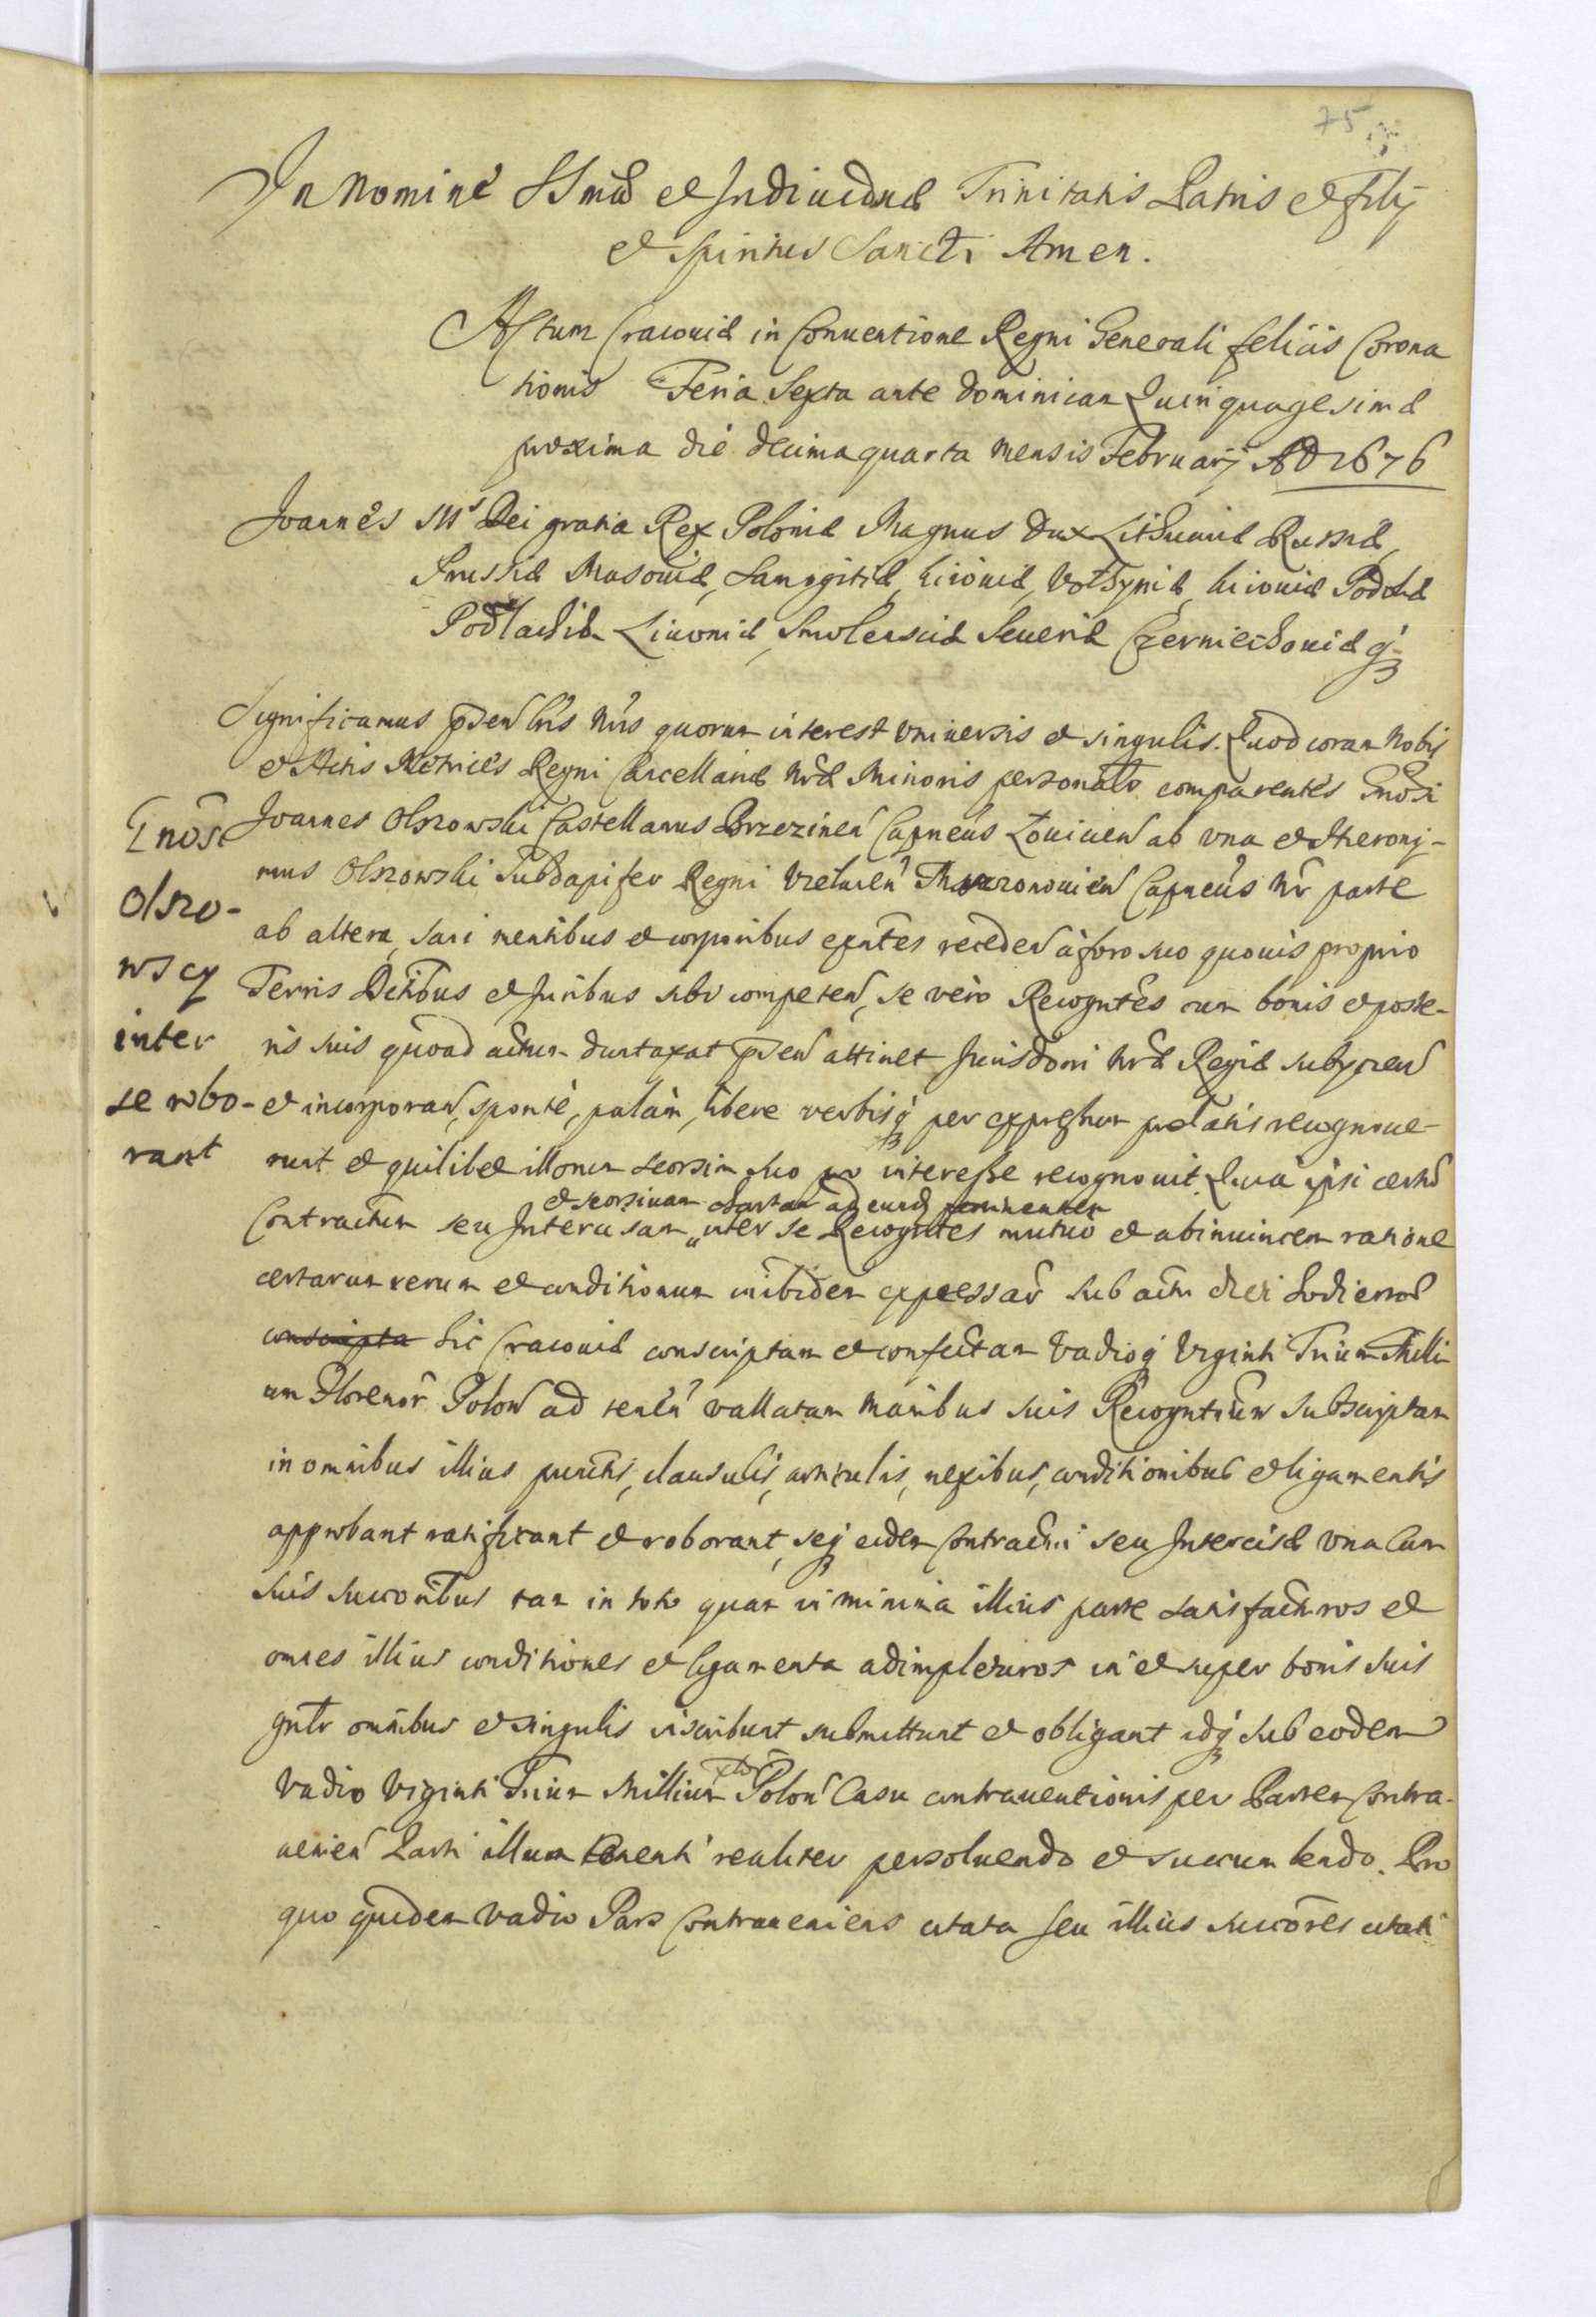 75
In Nomine SSmæ et Indiuiduæ Trinitatis Patris et Filij
et Spiritus Sancti Amen.
Actum Cracouiæ in Conuentione Regni Generali felicis Corona
tionis Feria Sexta ante Dominicam Quinquagesimæ
proxima die decima quarta mensis Februarij AD 1676
Joannes III Dei gratia Rex Poloniæ Magnus Dux Lithuaniæ Russiæ,
Prussiæ Masouiæ, Samogitiæ, Kiiouiæ, Volhyniæ, Kiiouiæ Podoliæ
Podlachiæ Liuoniæ, Smolensciæ Seueriæ Czerniechouiæ q;
Significamus pñtibus lris nris quorum interest Vniuersis et singulis. Quod coram Nobis
et Actis Metrices Regni Cancellariæ nræ Minoris personalr comparentes Gnosi
Gnosi
Olszo-
wscy
inter
se robo-
rant
Joannes Olszowski Castellanus Brzezinen Capneus Louicien ab vna et Hierony-
mus Olszowski Subdapifer Regni Vieluen Capneus nr parte
ab altera, sani mentibus et corporibus exntes receden à foro suo quouis proprio
Terris Dctibus et Juribus sibi competen, se vero Recogntes cum bonis et poste-
ris suis quoad actum duntaxat psen attinet Jurisdoni nræ Regiæ subijcien
et incorporan, sponte, palàm, libere verbisq; per expressum prolatis recognoue-
runt et quilibet illorum seorsim suo pro interesse recognouit. Quia ipsi certum
et seorsiuam chartam ad eund pertinentem
Contractum seu Intercisam inter se Recogntes mutuò et abinuincem ratione
certarum rerum et conditionum inibidem expressar sub actu diei hodiernæ
conscripta hic Cracouiæ conscriptam et confectam Vadioq; Viginti Trium Milli
um Florenor Polon ad tenen vallatam manibus suis Recogntium subscriptam
in omnibus illius punctis, clausulis, articulis, nexibus, conditionibus et ligamentis
approbant ratificant et roborant, seq; eidem Contractui seu Intercisæ vna cum
suis succoribus tam in toto quam in minima illius parte satisfacturos et
omnes illius conditiones et ligamenta adimpleturos in et super bonis suis
gnlr omnibus et singulis inscribunt submittunt et obligant idq; sub eodem
Vadio Viginti Trium Millium Polon Casu contrauentionis per Partem Contra-
uenien Parti illum tenenti realiter persoluendo et succumbendo. Pro
quo quidem vadio Pars Contraueniens citata seu illius succores citati